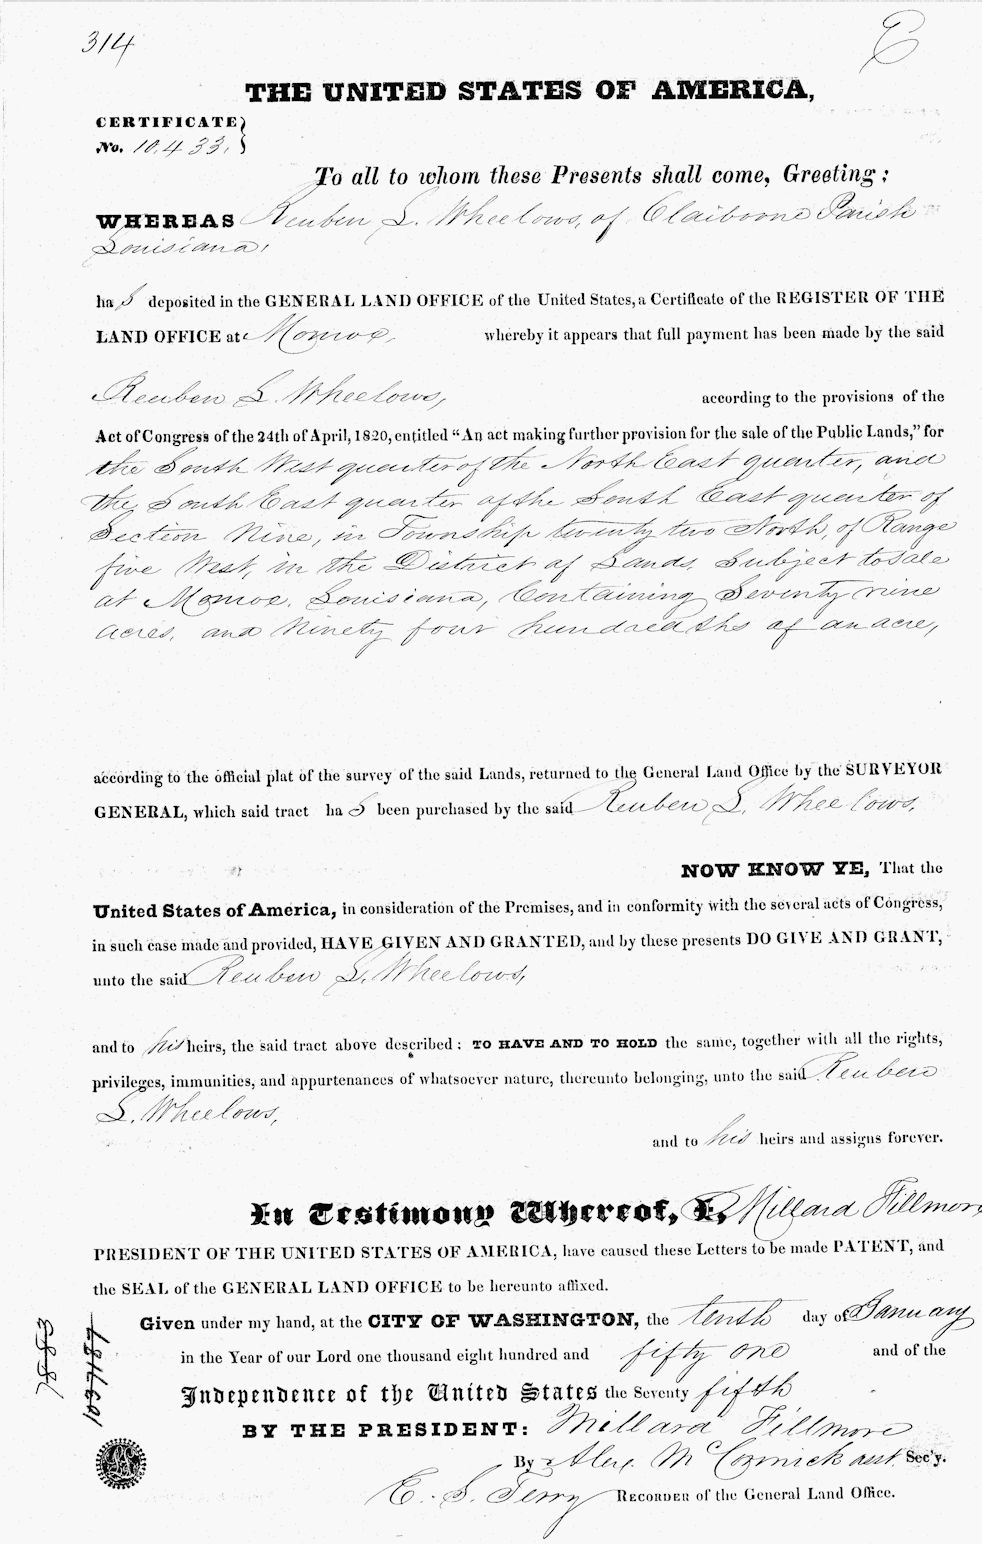 314
THE UNITED STATES OF AMERICA,
CERTIFICATE
No. 10.433.
To all to whom these Presents shall come, Greeting:
WHEREAS Reuben L. Wheelows, of Claiborne Parish
Louisiana,
has deposited in the GENERAL LAND OFFICE of the United States, a Certificate of the REGISTER OF THE
LAND OFFICE at Monroe, whereby it appears that full payment has been made by the said
Reuben L. Wheelows, according to the provisions of the
Act of Congress of the 24th of April, 1820, entitled “An act making further provision for the sale of the Public Lands,” for
the South West quarter of the North East quarter, and
the South East quarter of the South East quarter of
Section Nine, in Township twenty two North, of Range
five West, in the District of Lands, Subject to Sale
at Monroe, Louisiana, Containing Seventy nine
acres, and Ninety four hundredths of an acre,
according to the official plat of the survey of the said Lands, returned to the General Land Office by the SURVEYOR
GENERAL, which said tract has been purchased by the said Reuben L. Wheelows,
NOW KNOW YE, That the
United States of America, in consideration of the Premises, and in conformity with the several acts of Congress,
in such case made and provided, HAVE GIVEN AND GRANTED, and by these presents DO GIVE AND GRANT,
unto the said Reuben L. Wheelows,
and to his heirs, the said tract above described: TO HAVE AND TO HOLD the same, together with all the rights,
privileges, immunities, and appurtenances of whatsoever nature, thereunto belonging, unto the said Reuben
L. Wheelows,
and to his heirs and assigns forever.
In Testimony Whereof, I, Millard Fillmore
PRESIDENT OF THE UNITED STATES OF AMERICA, have caused these Letters to be made PATENT, and
the SEAL of the GENERAL LAND OFFICE to be hereunto affixed.
Given under my hand, at the CITY OF WASHINGTON, the tenth day of January
in the Year of our Lord one thousand eight hundred and fifty one and of the
Independence of the United States the Seventy fifth
BY THE PRESIDENT: Millard Fillmore
By Alex. McCormick asst. Sec'y.
E. S. Terry RECORDER of the General Land Office.
7883